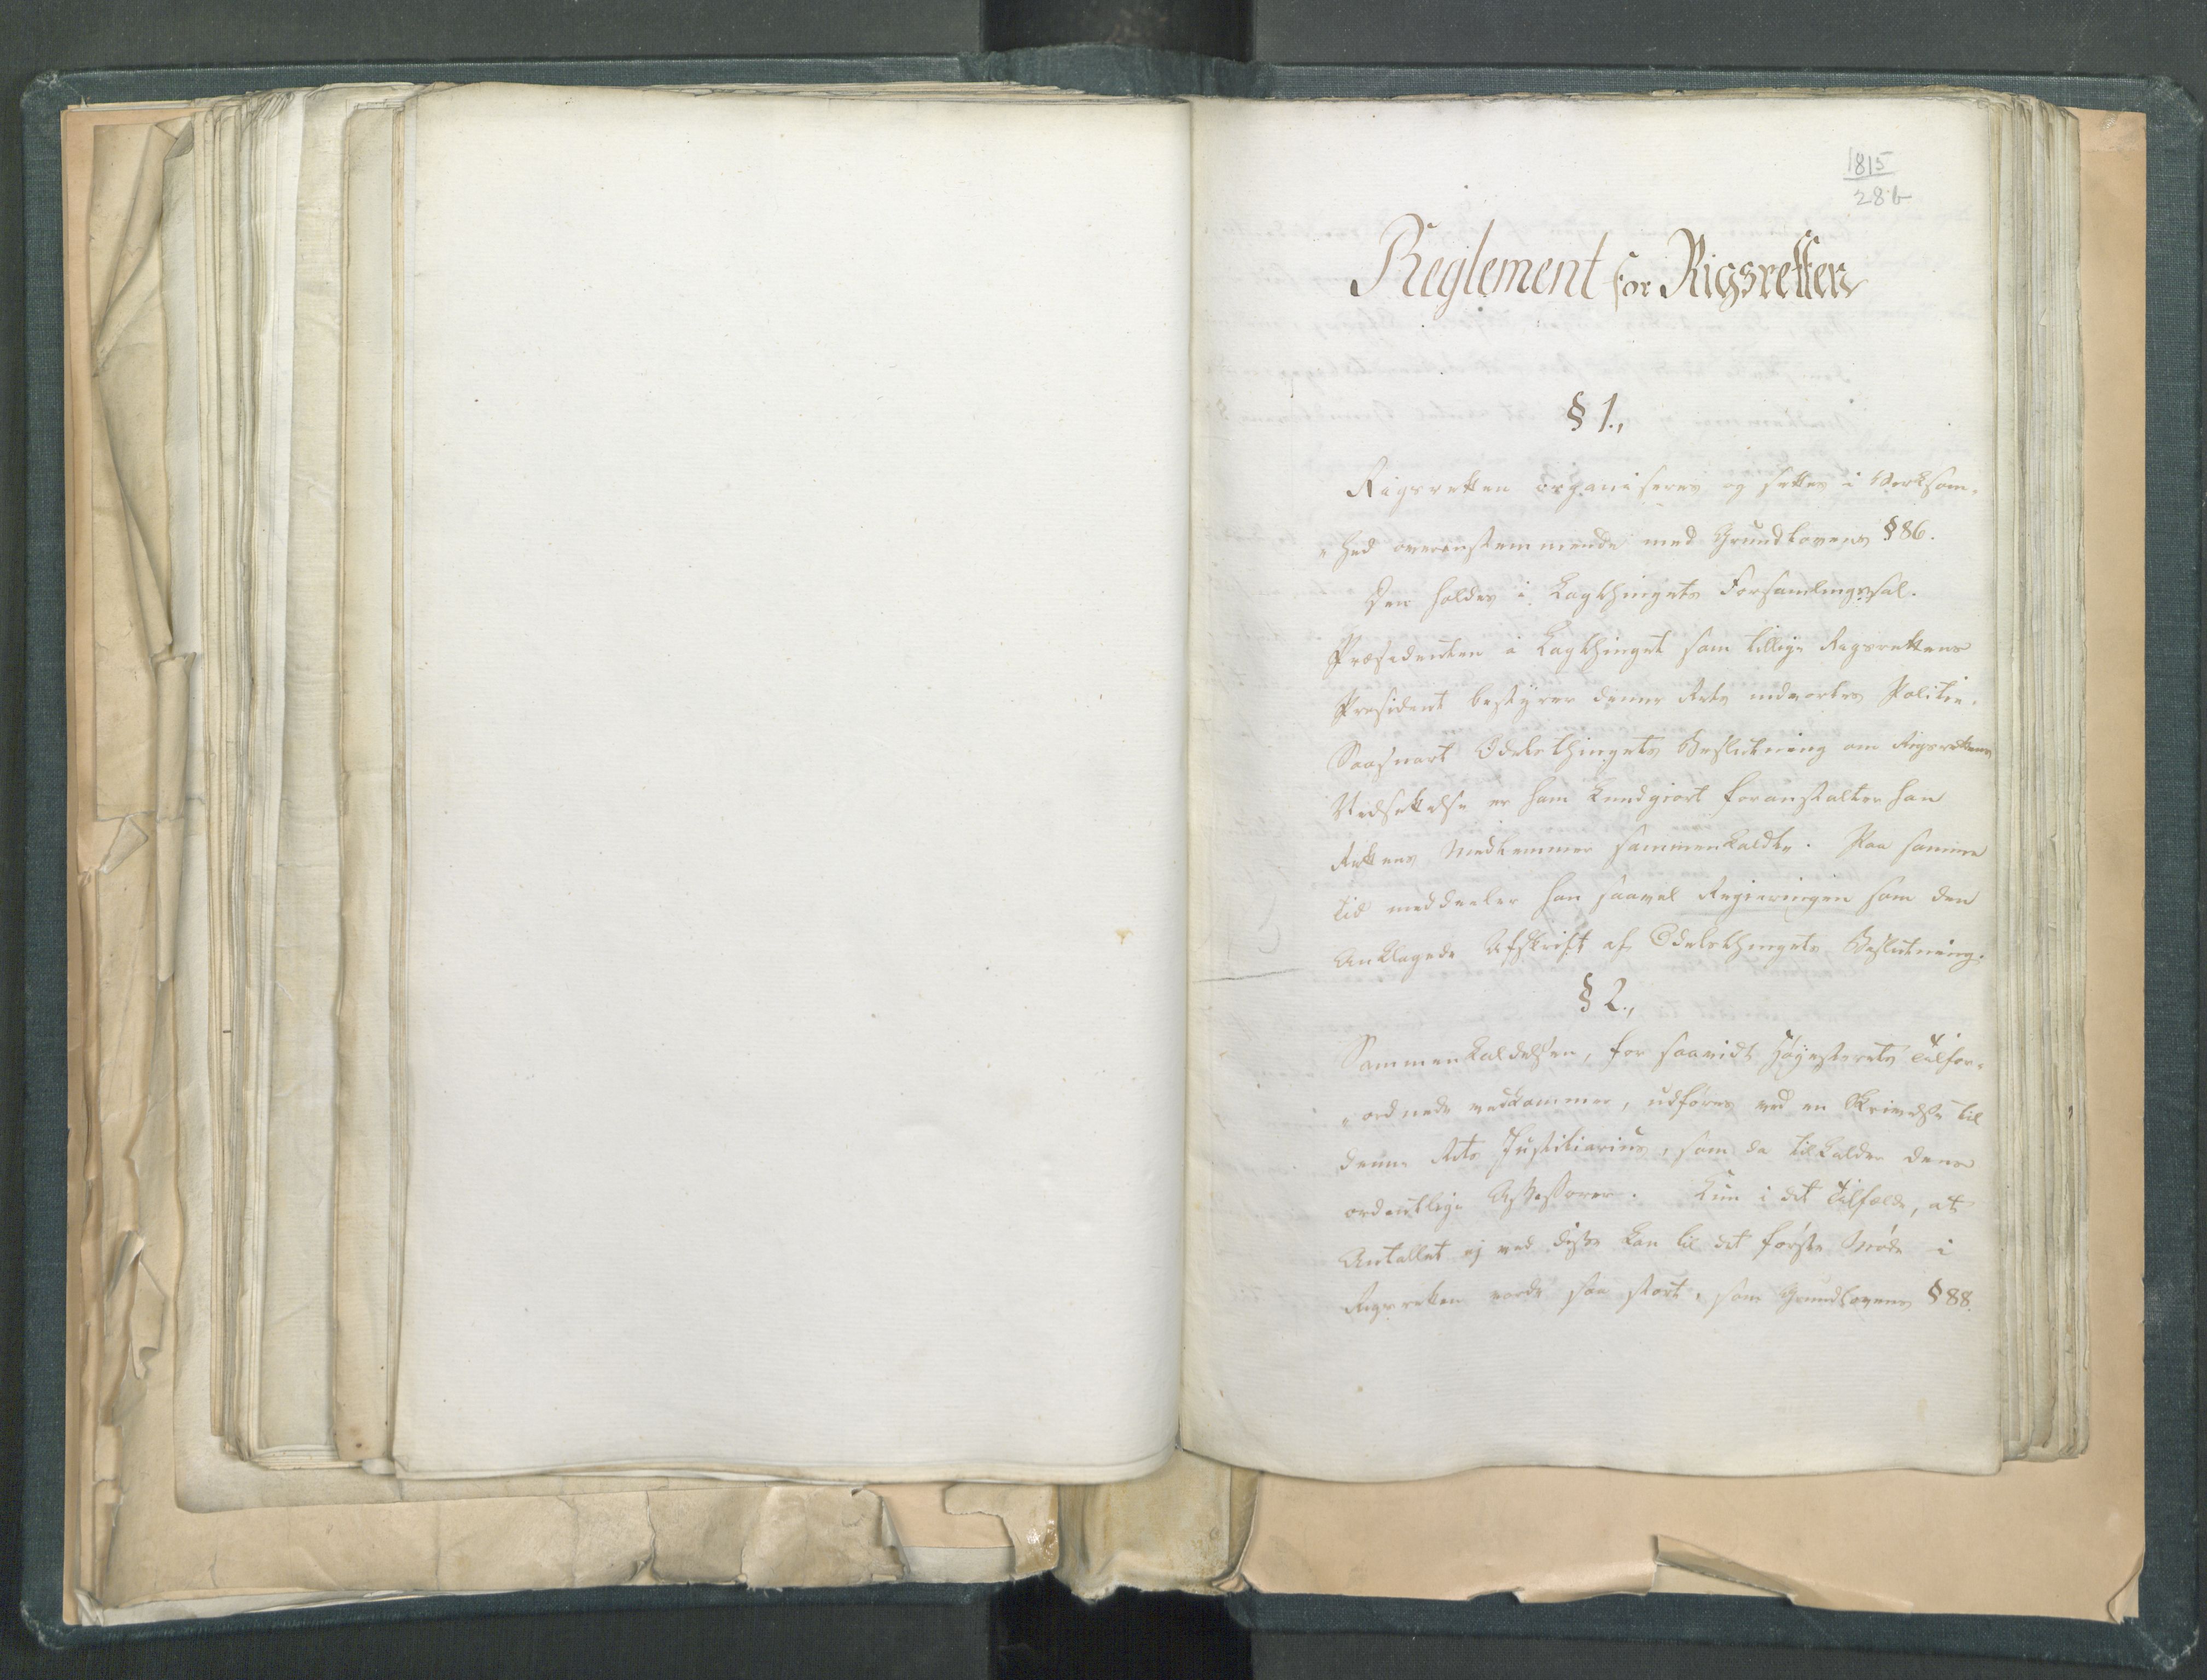 1815
28 b
Reglement for Rigsretten
§ 1.,
Rigsretten organiseres og settes i Verksom-
-hed overensstemmende med Grundlovens § 86.
Den holdes i Lagthingets Forsamlingssal.
Præsidenten i Lagthinget som tillige Rigsrettens
Præsident bestyrer denne Rets indvortes Politie.
Saasnart Odelsthingets Beslutning om Rigsrettens
Nedsettelse er ham kundgiort foranstalter han
Rettens Medlemmer sammenkaldte. Paa samme
Tid meddeeler han saavel Regieringen som den
Anklagede Afskrift af Odelsthingets Beslutning.
§ 2.,
Sammenkaldelsen, for saavidt Høyesterets Tilfor-
-ordnede vedkommer, udføres ved en Skrivelse til
denne Rets Justitiarius, som da tilkalder dens
ordentlige Assessorer. Kun i det Tilfælde, at
Antallet ej ved disse kan til det første Møde i
Rigsretten vorde saa stort, som Grundlovens § 88.